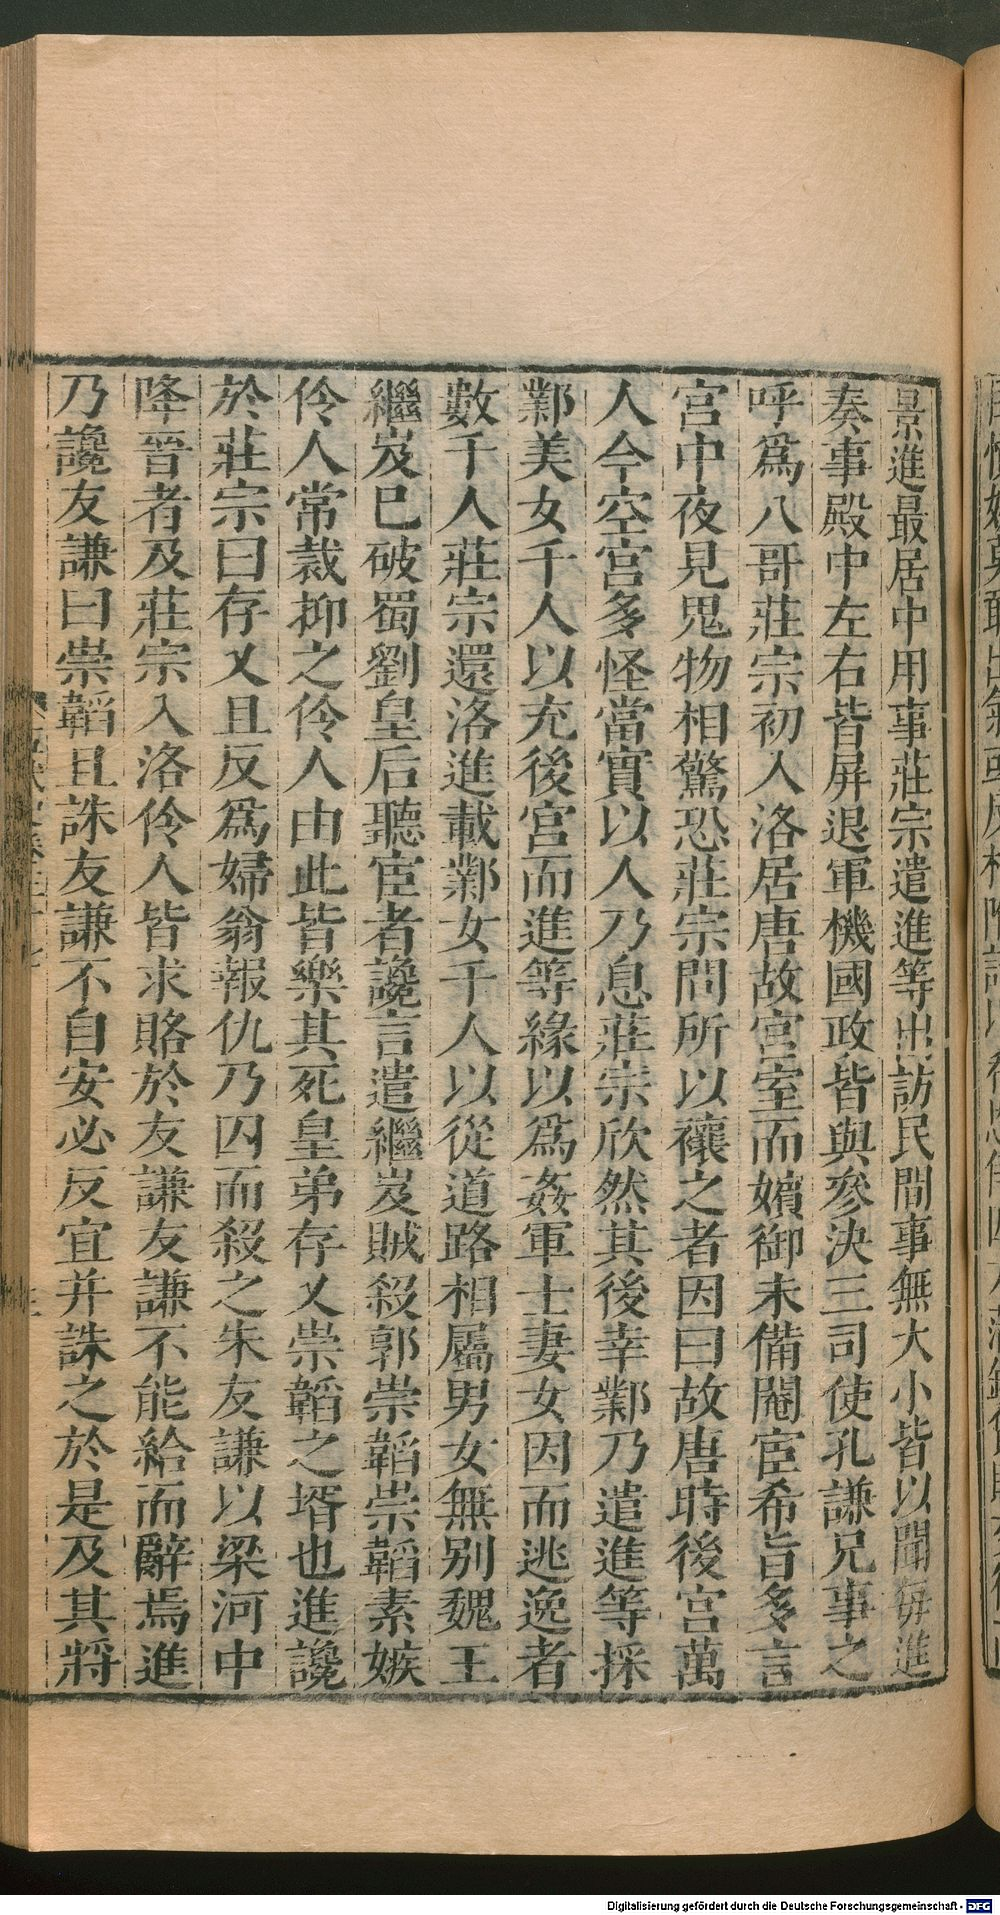 景進最居中用事莊宗遣進等出訪民間事無大小皆以聞每進
奏事殿中左右皆屏退軍機國政皆與參決三司使孔謙兄事之
呼爲八哥莊宗初入洛居唐故宮室而嬪御未備閹宦希旨多言
宮中夜見鬼物相驚恐莊宗問所以禳之者因曰故唐時後宮萬
人今空宮多怪當實以人乃息莊宗欣然其後幸鄴乃遣進等採
鄴美女千人以充後宮而進等緣以爲姦軍士妻女因而逃逸者
數千人莊宗還洛進載鄴女千人以從道路相屬男女無別魏王
繼岌已破蜀劉皇后聽宦者讒言遣繼岌賊殺郭崇韜崇韜素嫉
伶人常裁抑之伶人由此皆樂其死皇弟存乂崇韜之壻也進讒
於莊宗曰存乂且反爲婦翁報仇乃囚而殺之朱友謙以梁河中
降晉者及莊宗入洛伶人皆求賂於友謙友謙不能給而辭焉進
乃讒友謙曰崇韜且誅友謙不自安必反宜并誅之於是及其將
Digitalisierung gefördert durch die Deutsche Forschungsgemeinschaft - DFG